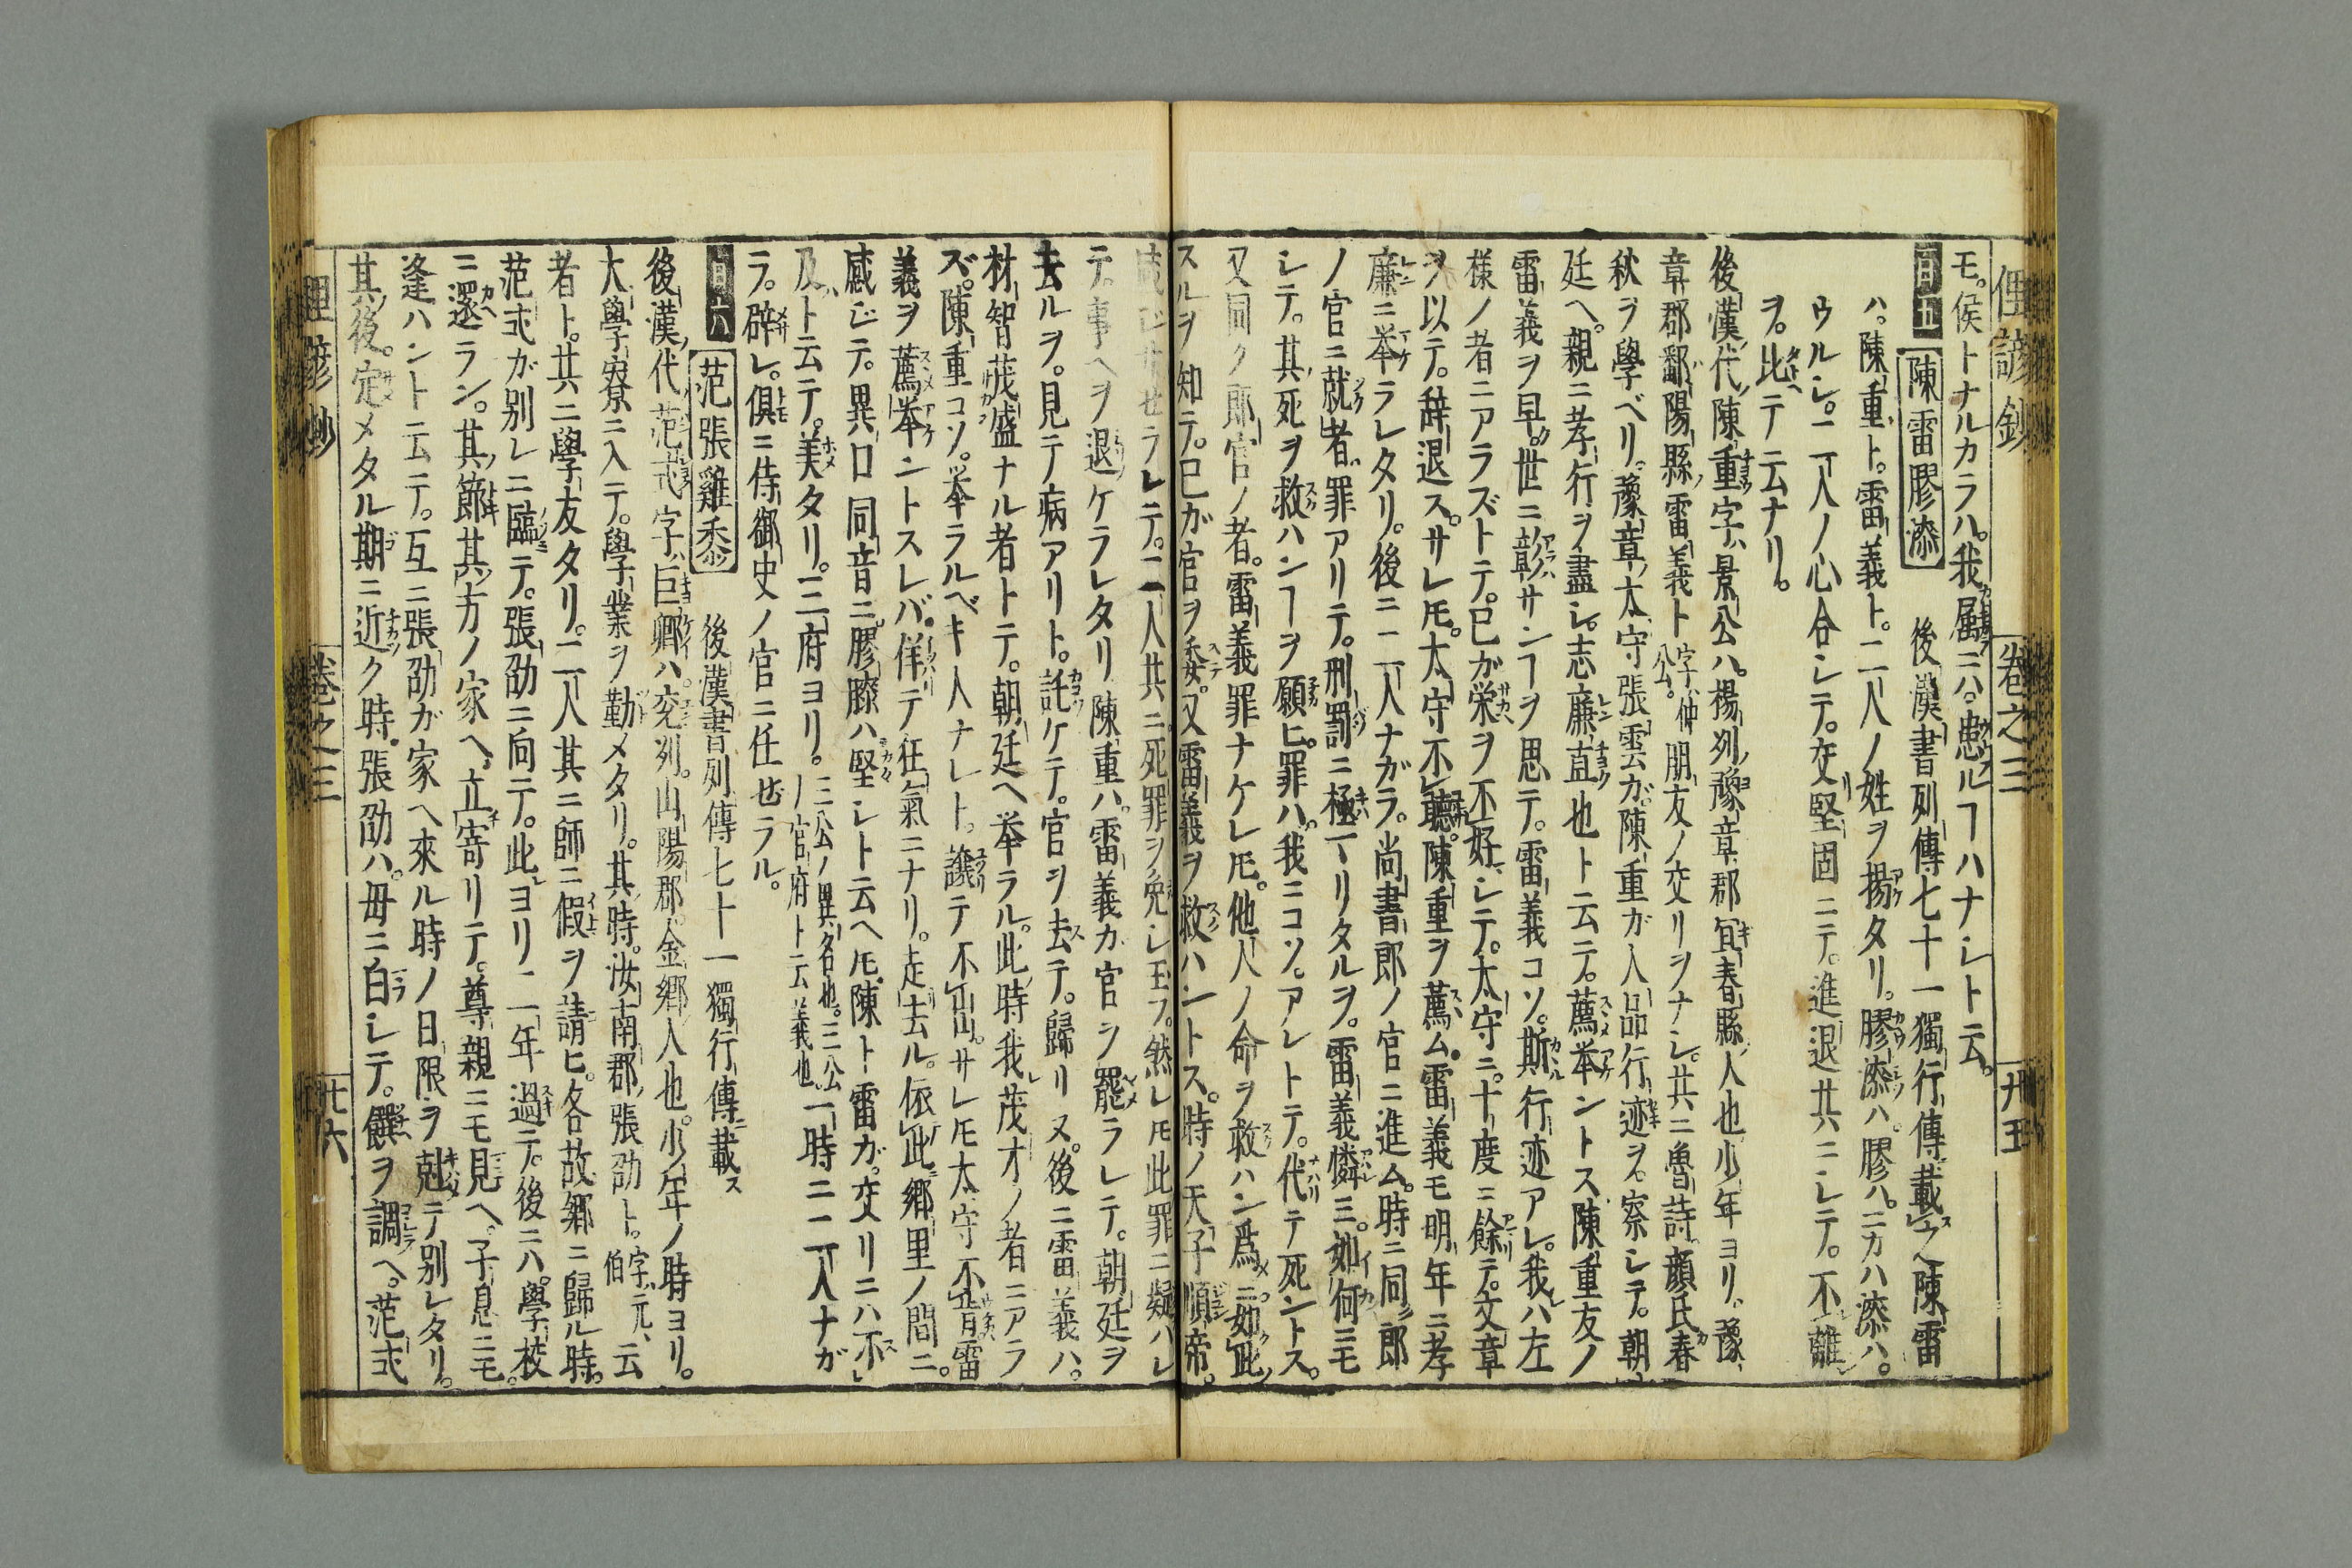 俚諺鈔 卷之三 廿五
モ。侯トナルカラハ。我屬ニハ。患ルヿハナシト云。
百五 陳雷膠漆 後漢書列傳七十一獨行傳載ス ウヘ陳雷
ハ。陳重ト。雷義ト。二人ノ姓ヲ揚タリ。膠漆ハ。膠ハ。ニカハ漆ハ。
ウルシ。二人ノ心合シテ。交堅固ニテ。進退共ニシテ。不離
ヲ。比テ云ナリ。
後漢代。陳重字ハ景公ハ。揚列豫章郡宜春縣人也少年ヨリ。豫
章郡鄱陽縣雷義ト字ハ仲公。朋友ノ交リヲナシ。共ニ魯詩顔氏春
秋ヲ學ベリ。豫章太守張雲ガ。陳重ガ人品行迹ヲ。察シテ。朝
廷ヘ。親ニ孝行ヲ盡シ。志廉直也ト云テ。薦挙ントス陳重友ノ
雷義ヲ早。世ニ彰サンヿヲ思テ。雷義コソ。斯行迹アレ。我ハ左
様ノ者ニアラズトテ。已ガ栄ヲ不好シテ。太守ニ。十度ニ餘テ。文章
ヲ以テ。辞退ス。サレ𪜈。太守不聽。陳重ヲ薦ム。雷義モ明年ニ孝
廉ニ挙ラレタリ。後ニ二人ナガラ。尚書郎ノ官ニ進ム。時ニ同郎
ノ官ニ就者。罪アリテ。刑罰ニ極マリタルヲ。雷義憐ミ。如何ニモ
シテ。其死ヲ救ハンヿヲ願ヒ。罪ハ。我ニコソ。アレトテ。代テ死ントス。
又同ク郎官ノ者。雷義罪ナケレ𪜈。他人ノ命ヲ救ハン爲ニ。如此
スルヲ知テ。已ガ官ヲ委。又雷義ヲ救ハントス。時ノ天子順帝。
感ジ世ラレテ。二人共ニ死罪ヲ免シ玉フ。然レ𪜈此罪ニ疑ハレ
テ。事ヘヲ退ケラレタリ陳重ハ。雷義カ官ヲ罷ラレテ。朝廷ヲ
去ルヲ。見テ病アリト。託ケテ。官ヲ去テ。歸リヌ。後ニ雷義ハ。
材智茂盛ナル者トテ。朝廷ヘ挙ラル。此時我茂才ノ者ニアラ
ズ。陳重コソ。挙ラルベキ人ナレト。讓テ不出。サレ𪜈太守不肯雷
義ヲ薦挙ントスレバ。佯テ狂氣ニナリ。走去ル。依此郷里ノ間ニ。
感ジテ。異口同音ニ。膠漆ハ堅シト云ヘ𪜈。陳ト雷ガ。交リニハ不
及ト云テ。美タリ。三府ヨリ。三公ノ異名也。三公ノ官府ト云義也。一時ニ二人ナガ
ラ。辟レ。俱ニ侍御史ノ官ニ任世ラル。
百六 范張雞黍 後漢書列傳七十一獨行傳ニ載ス
後漢代范式字ハ巨卿ハ。兖列。山陽郡。金郷人也。少年ノ時ヨリ。
大學寮ニ入テ。學業ヲ勤メタリ。其時。汝南郡張劭ト。字ハ元伯云
者ト。共ニ學友タリ。二人其ニ師ニ假ヲ請ヒ。各故郷ニ歸ル時。
范式ガ別レニ臨テ。張劭ニ向テ。此ヨリ二年過テ。後ニハ。學校
ニ還ラン。其節其方ノ家ヘ。立寄リテ。尊親ニモ見ヘ。子息ニモ。
逢ハント云テ。互ニ張劭ガ家ヘ來ル時ノ日限ヲ尅テ別レタリ。
其後。定メタル期ニ近ク時。張劭ハ。母ニ白シテ。饌ヲ調ヘ。范式
俚諺鈔 卷之三 廿六